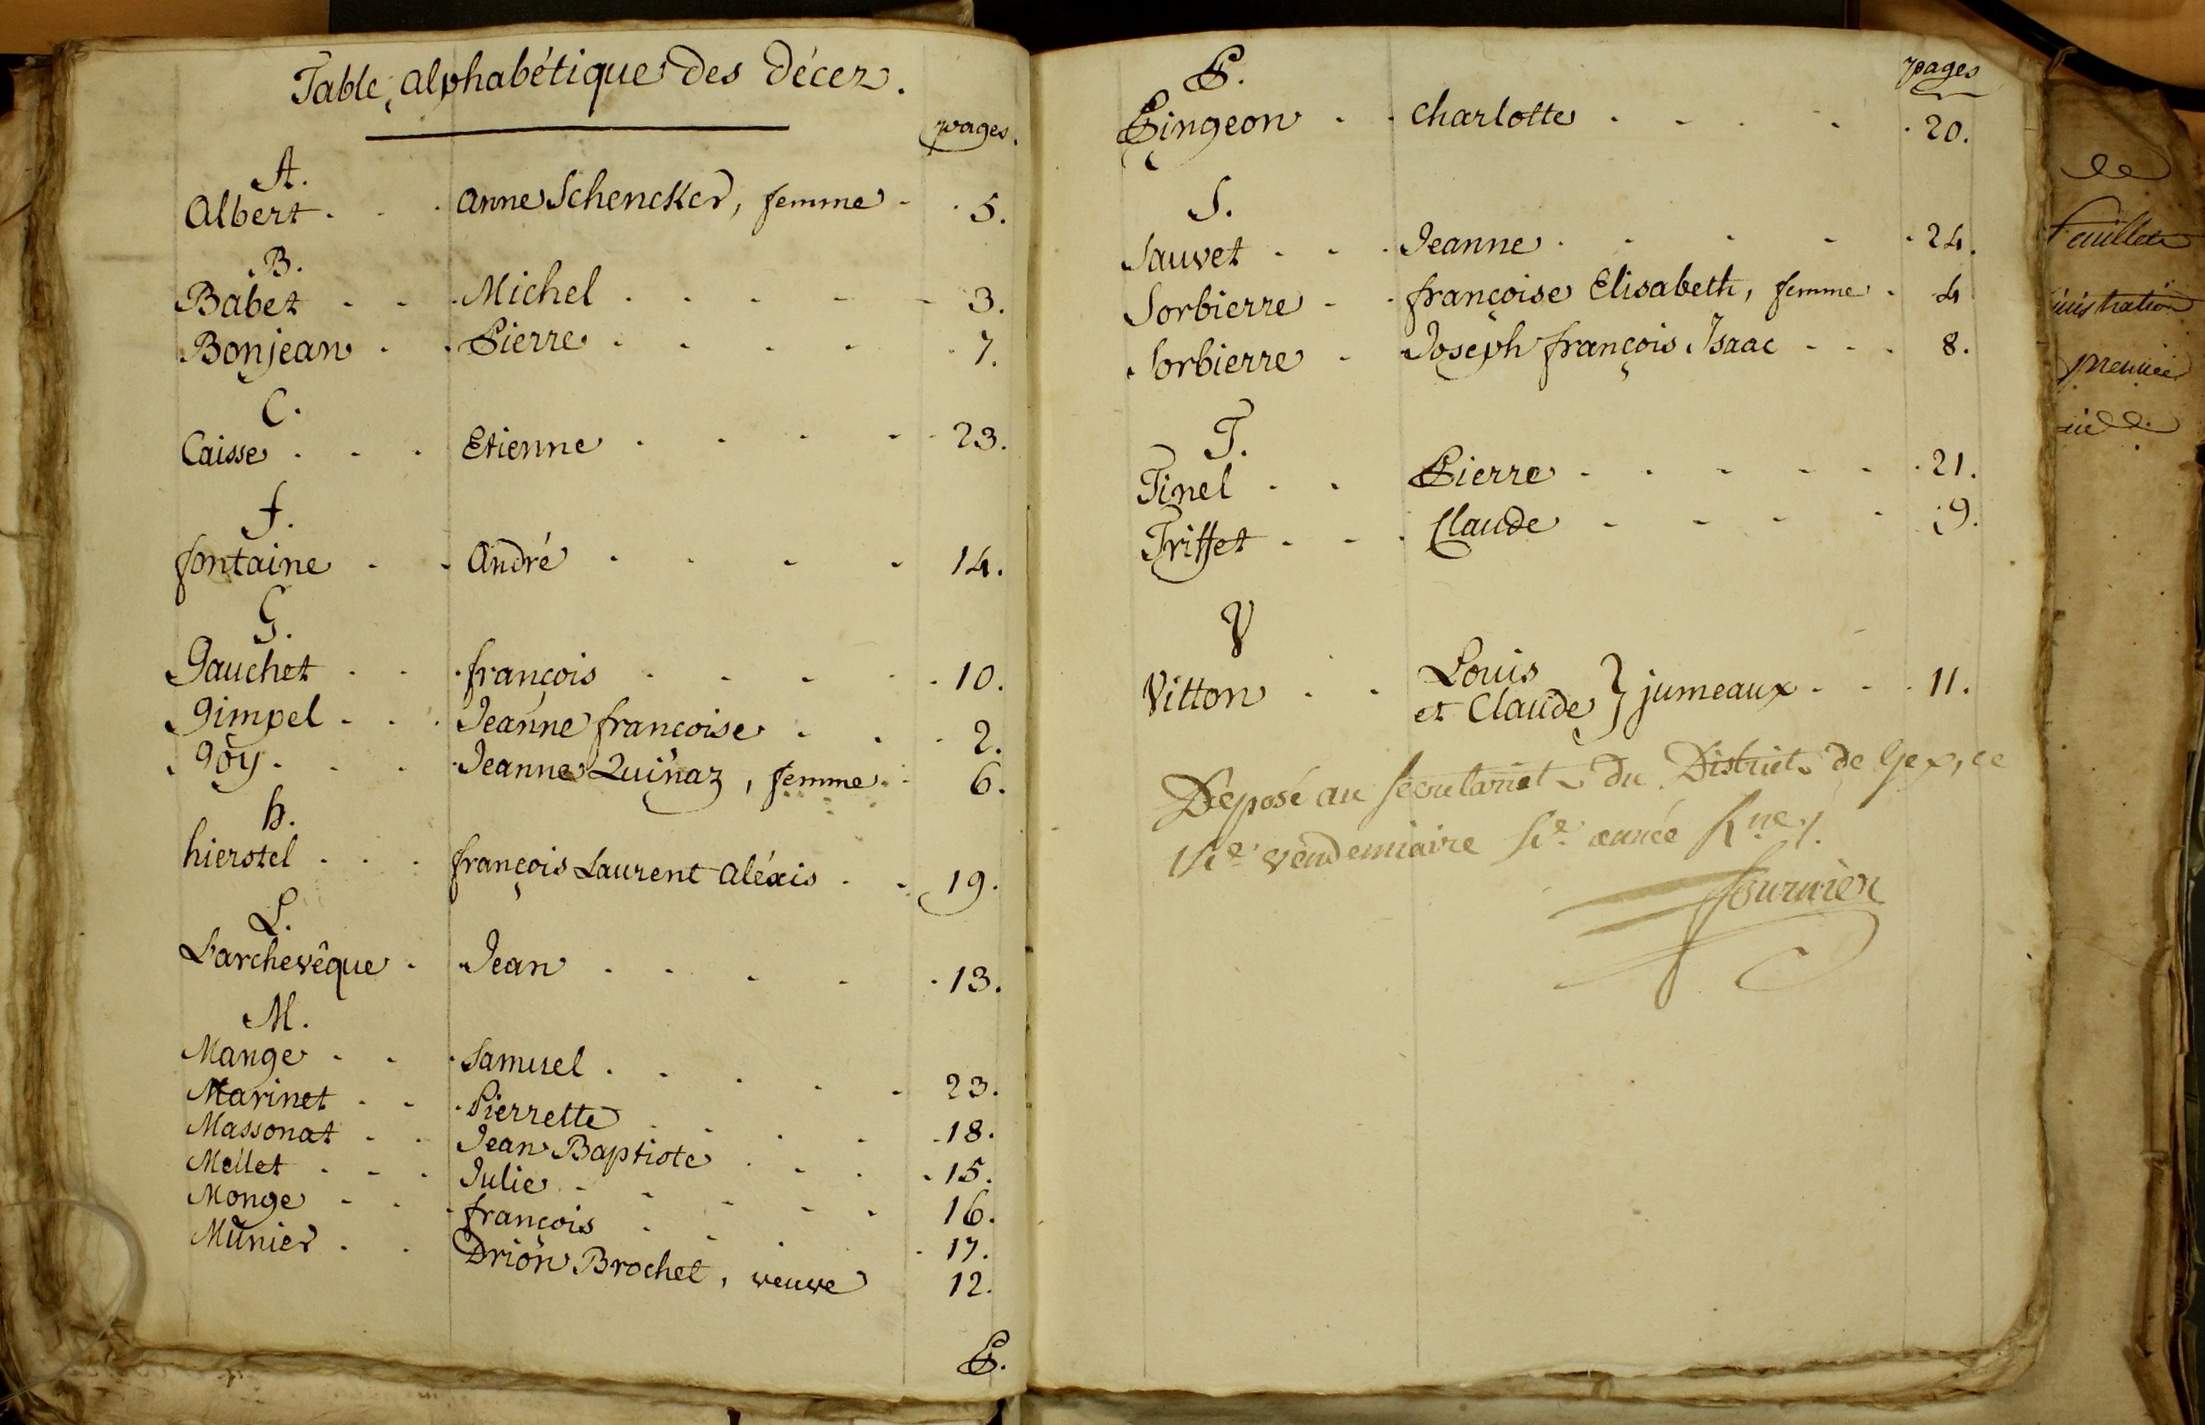 Table alphabétique des Décez.
pages.
A.
Albert . . . Anne Schencker, femme . . 5.
B.
Babet . . . Michel . . . . . 3.
Bonjean . . Pierre . . . . . 7.
C.
Caisse . . . Etienne . . . . . 23.
f.
fontaine . . André . . . . 14.
G.
Gauchet . . . françois . . . . . 10.
Gimpel . . . Jeanne francoise . . . 2.
Goy . . . Jeanne Quinaz, femme . . 6.
h.
hierotel . . . françois Laurent Aléxis . . 19.
L.
Larchevêque . Jean . . . . . 13.
M.
Mange . . . Samuel . . . . . 23.
Marinet . . . Pierrette . . . . 18.
Massonat . . Jean Baptiste . . . . 15.
Mellet . . . Julie . . . . . 16.
Monge . . . françois . . . . 17.
Munier . . Drion Brochet, veuve 12.
P.
P.
pages
Pingeon . . Charlotte . . . . . 20.
S.
Sauvet . . . Jeanne . . . . . 24.
Sorbierre . . françoise Elisabeth, femme . 4
Sorbierre . Joseph françois Isaac . . . 8.
T.
Tinel . . Pierre . . . . . . 21.
Triffet . . . Claude . . . . 9.
V
Vitton . . Louis
et Claude } jumeaux . . . 11.
Déposé au secretariat du District de Gex, ce
vendemiaire année
fournier
feuillet
premier